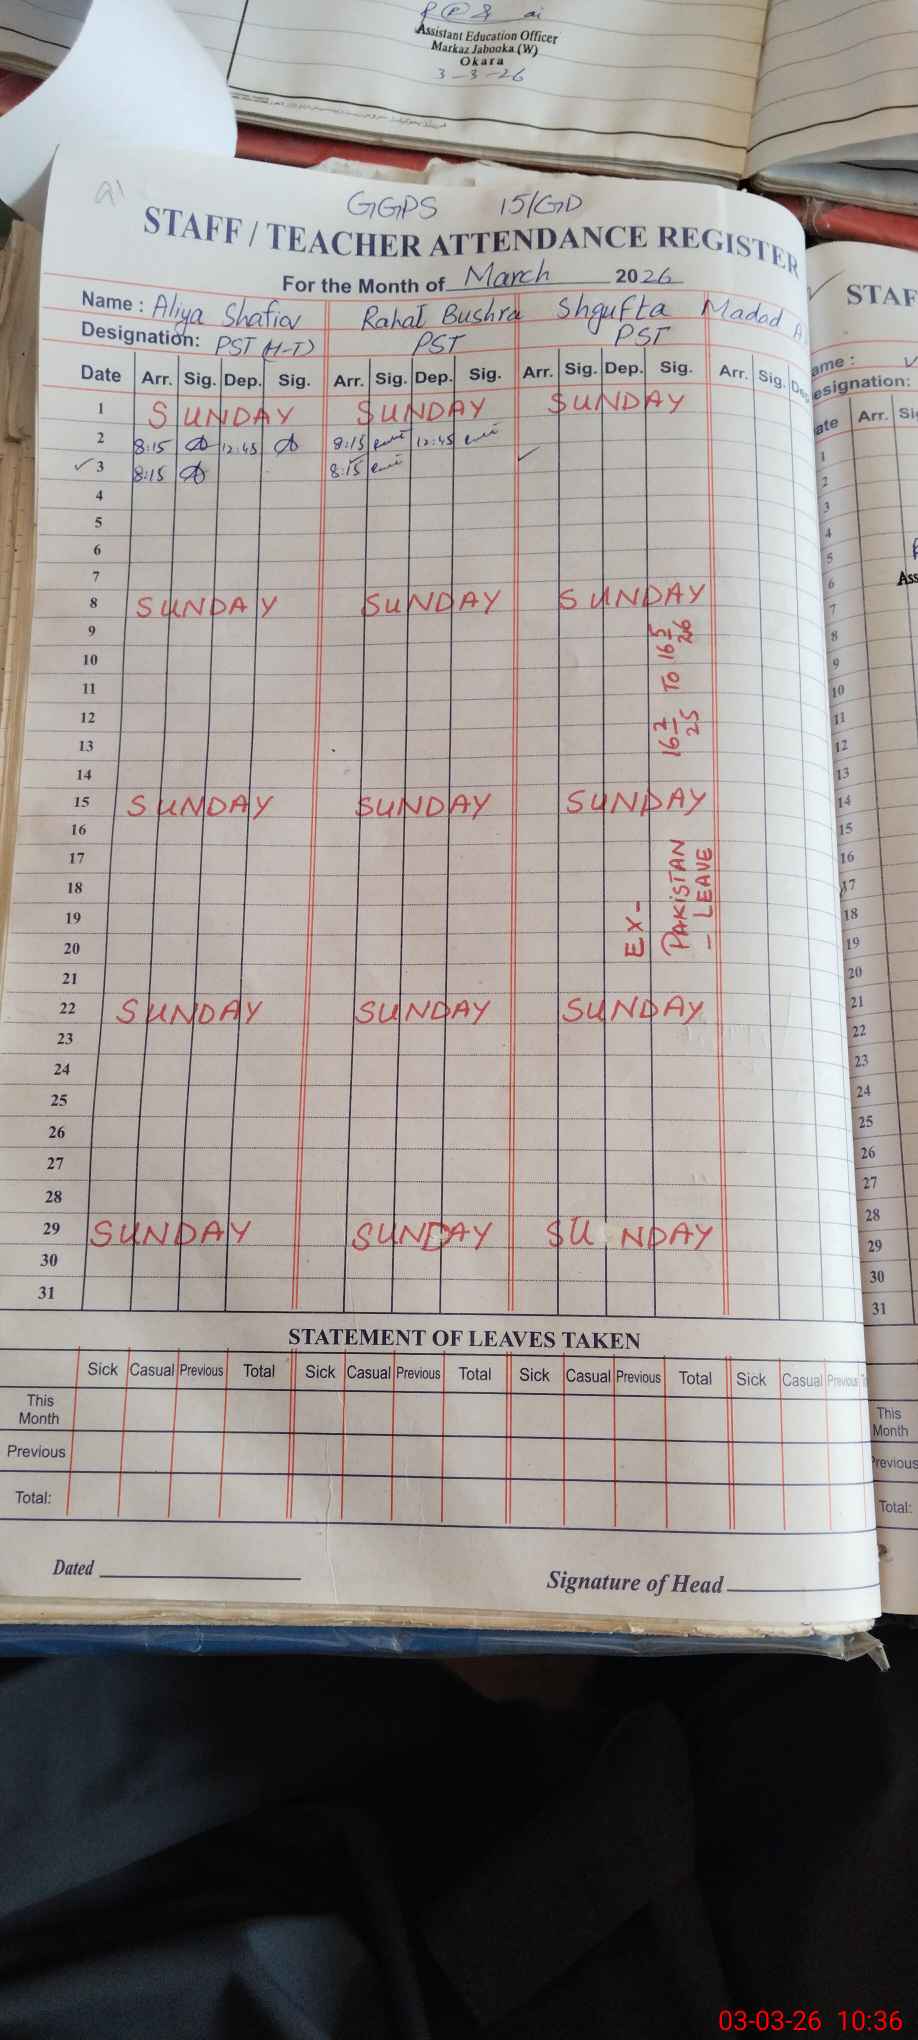 Assistant Education Officer
Markaz Jabooka (W)
Okara
3-3-26
GGPS 15/GD
STAFF / TEACHER ATTENDANCE REGISTER
For the Month of March 2026
Name : Aliya Shafiq Rahat Bushra Shgufta Madad
Designation: PST (H-T) PST PST
Date Arr. Sig. Dep. Sig. Arr. Sig. Dep. Sig. Arr. Sig. Dep. Sig. Arr. Sig. Dep
1 SUNDAY SUNDAY SUNDAY
2 8:15 12:45 8:15 12:45
✓3 8:15 8:15 ✓
4
5
6
7
8 SUNDAY SUNDAY SUNDAY
9
10
11
12
13
14
15 SUNDAY SUNDAY SUNDAY
16
17
18
19
20
21
22 SUNDAY SUNDAY SUNDAY
23
24
25
26
27
28
29 SUNDAY SUNDAY SUNDAY
30
31
16 2/25 TO 16 5/26
EX-
PAKISTAN
- LEAVE
STATEMENT OF LEAVES TAKEN
Sick Casual Previous Total Sick Casual Previous Total Sick Casual Previous Total Sick Casual Previous
This
Month
Previous
Total:
Dated
Signature of Head
STAF
ame :
esignation:
ate Arr. Si
1
2
3
4
5
6
7
8
9
10
11
12
13
14
15
16
17
18
19
20
21
22
23
24
25
26
27
28
29
30
31
Ass
This
Month
Previous
Total:
03-03-26 10:36